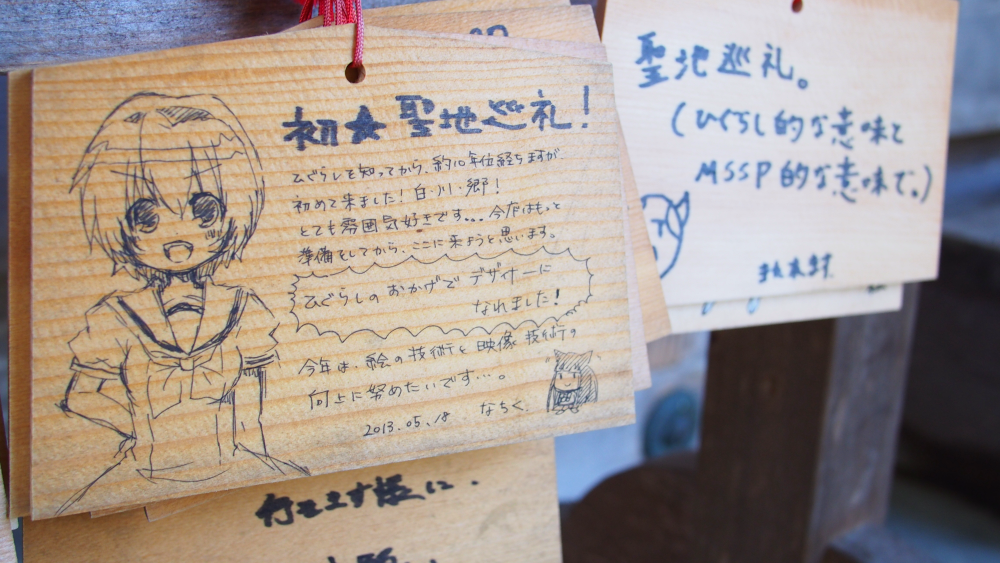 初★聖地巡礼!
ひぐらしを知ってから、約10年位経ちますが、
初めて来ました!白・川・郷!
とても雰囲気好きです...今度はもっと
準備をしてから、ここに来ようと思います。
ひぐらしのおかげでデザイナーに
なれました!
今年は、絵の技術と映像技術の
向上に努めたいです…。
2013.05.18 なちく
聖地巡礼。
(ひぐらし的な意味と
MSSP的な意味で。)
また来ます
行けます様に.